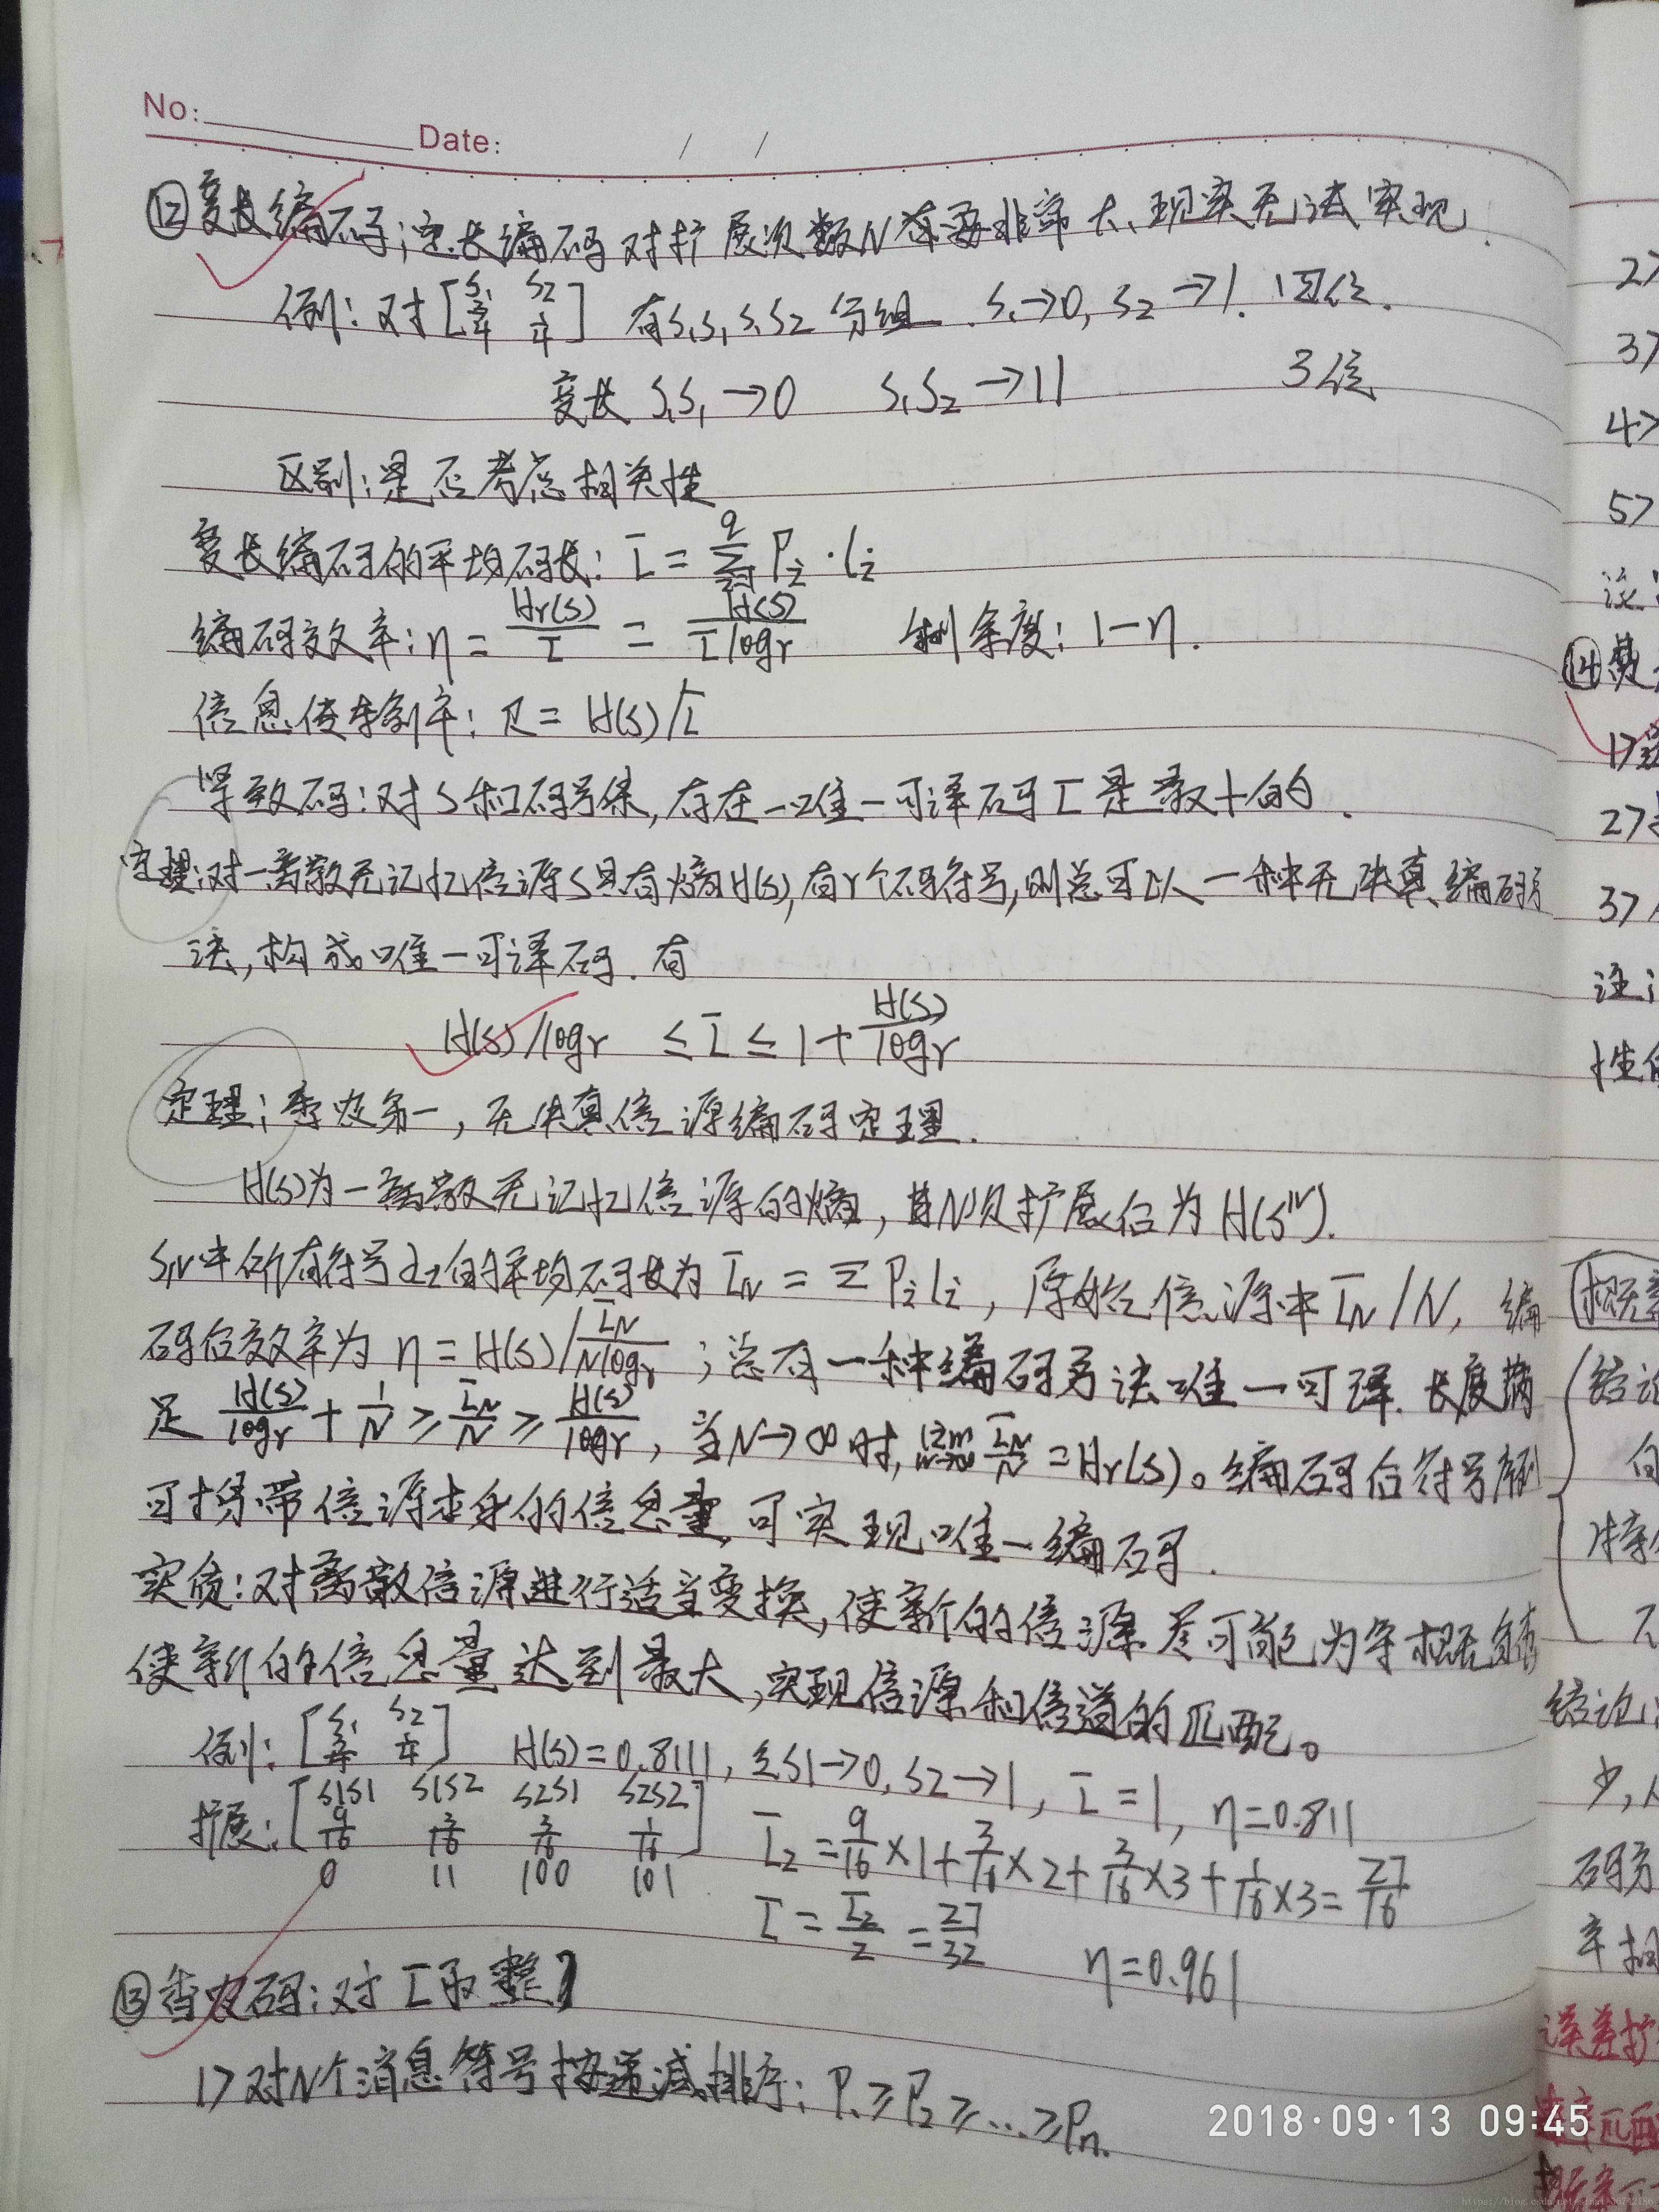 No:
Date: / /
⑫变长编码;定长编码对扩展次数N需要非常大、现实无法实现.
例: 对[S₁ S₂ 3/4 1/4] 有S₁S₁, S₁S₂ 分组. S₁→0, S₂→1. 四位.
变长 S₁S₁→0 S₁S₂→11 3位
区别:是否考虑相关性
变长编码的平均码长: L̄ = Σ Pᵢ·lᵢ
编码效率: η = Hr(S)/L̄ = H(S)/(L̄logr) 剩余度: 1-η.
信息传输率: R = H(S)/L̄
紧致码:对S和码号集,存在一唯一可译码L̄是最小的.
定理:对一离散无记忆信源S具有熵H(S),有r个码符号,则总可以一种无失真编码方
法,构成唯一可译码.有
H(S)/logr ≤ L̄ ≤ 1+H(S)/logr
定理:香农第一,无失真信源编码定理.
H(S)为一离散无记忆信源的熵,其N次扩展后为H(Sᴺ).
SN中所有符号αᵢ的平均码长为 L̄N = ΣPᵢlᵢ, 原始信源中L̄N/N, 编
码后效率为 η = H(S)/(L̄N/N logr);总有一种编码方法唯一可译.长度满
足 H(S)/logr + 1/N ≥ L̄N/N ≥ H(S)/logr, 当N→∞时, lim N→∞ L̄N/N = Hr(S)。编码后符号
可携带信源本身的信息量,可实现唯一编码.
实质:对离散信源进行适当变换,使新的信源尽可能为等概
使新的信息量达到最大,实现信源和信道的匹配。
例: [S₁ S₂ 3/4 1/4] H(S)=0.8111, S1→0, S2→1, L̄=1, η=0.811
扩展: [S1S1 S1S2 S2S1 S2S2 9/16 3/16 3/16 1/16]
0 11 100 101
L̄₂ = 9/16×1+3/16×2+3/16×3+1/16×3 = 27/16
L̄ = L̄₂/2 = 27/32 η=0.961
⑬香农码:对L̄取整
1> 对N个消息符号按递减排序: P₁≥P₂≥...≥Pn.
2>
3>
4>
5>
⑭
1>
2>
3>
注:
性
结论
结论
少,
码方
误差扩
2018·09·13 09:45